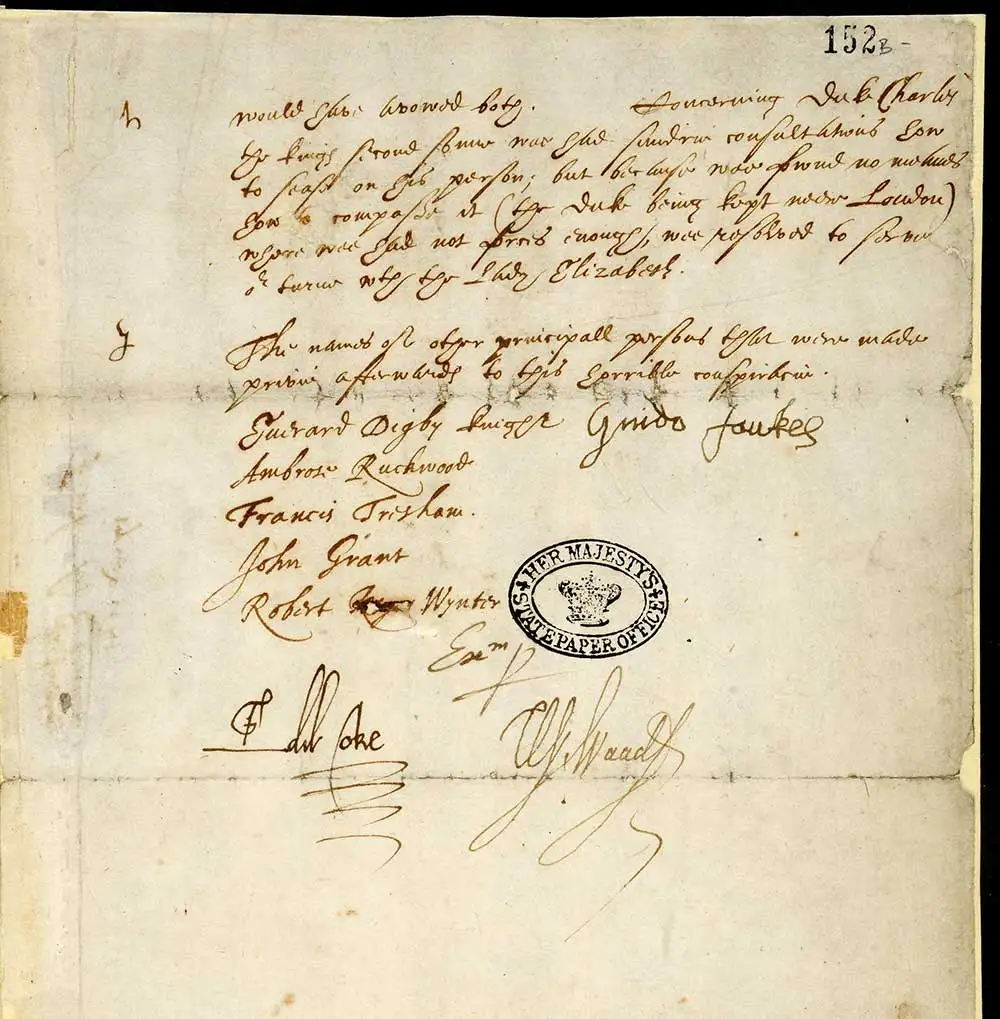 152 B -
h would have avowed both. Concerning Duke Charles
the kings second sonne wee had sundrie consultations how
to sease on his person; but because wee found no meanes
how compasse it (the Duke being kept neere London)
where wee had not forces enough, wee resolved to serve
or turne wth the Lady Elizabeth.
J The names of other principall persons that were made
privie afterwards to this horrible conspiracie.
Everard Digby knight Guido Faukes
Ambrose Ruckwood
Francis Tresham.
John Grant
Robert Wynter
HER MAJESTY'S STATE PAPER OFFICE
Exm p
Edw Coke W. Waad